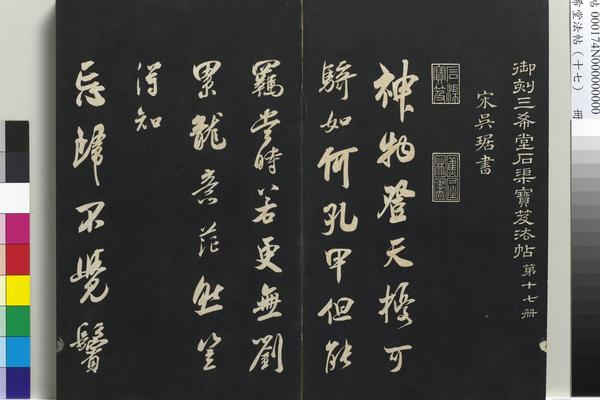 帖 000174N000000000
希堂法帖（十七） 冊
御刻三希堂石渠寶笈法帖 第十七册
宋吳琚書
石渠寶笈
神物登天擾可
騎如何孔甲但能
羈當時若更無劉
累龍意茫然豈
得知
忘歸不覺鬢